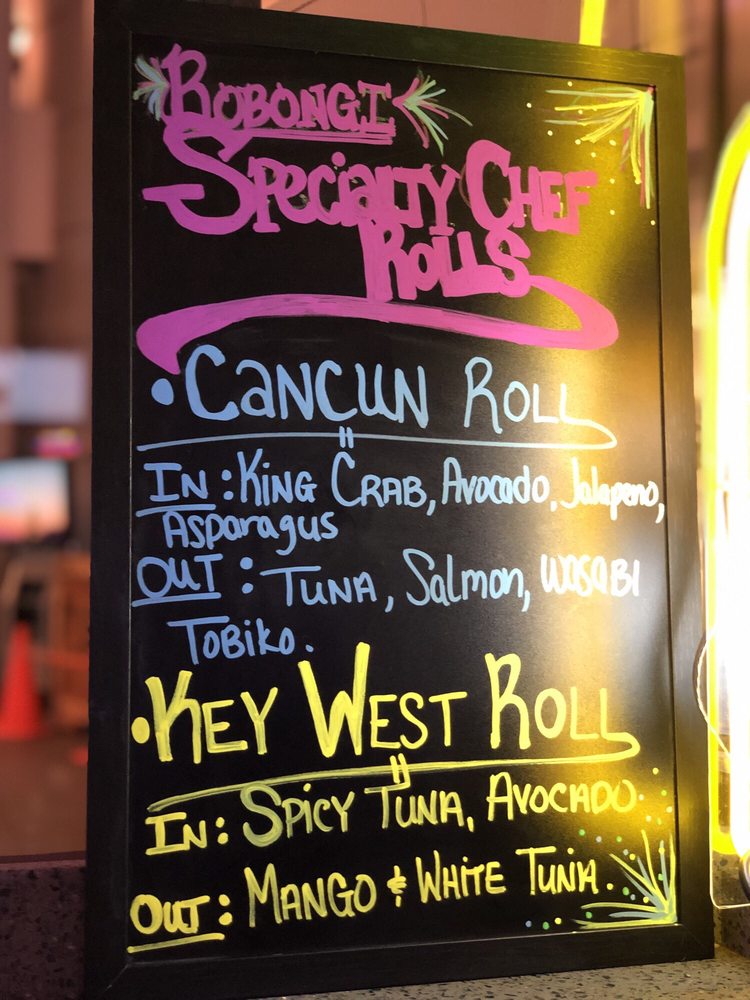 Robongi
Specialty Chef
Rolls
• Cancun Roll
In: King Crab, Avocado, Jalapeno,
Asparagus
Out: Tuna, Salmon, Wasabi
Tobiko.
• Key West Roll
In: Spicy Tuna, Avocado
Out: Mango & White Tuna.